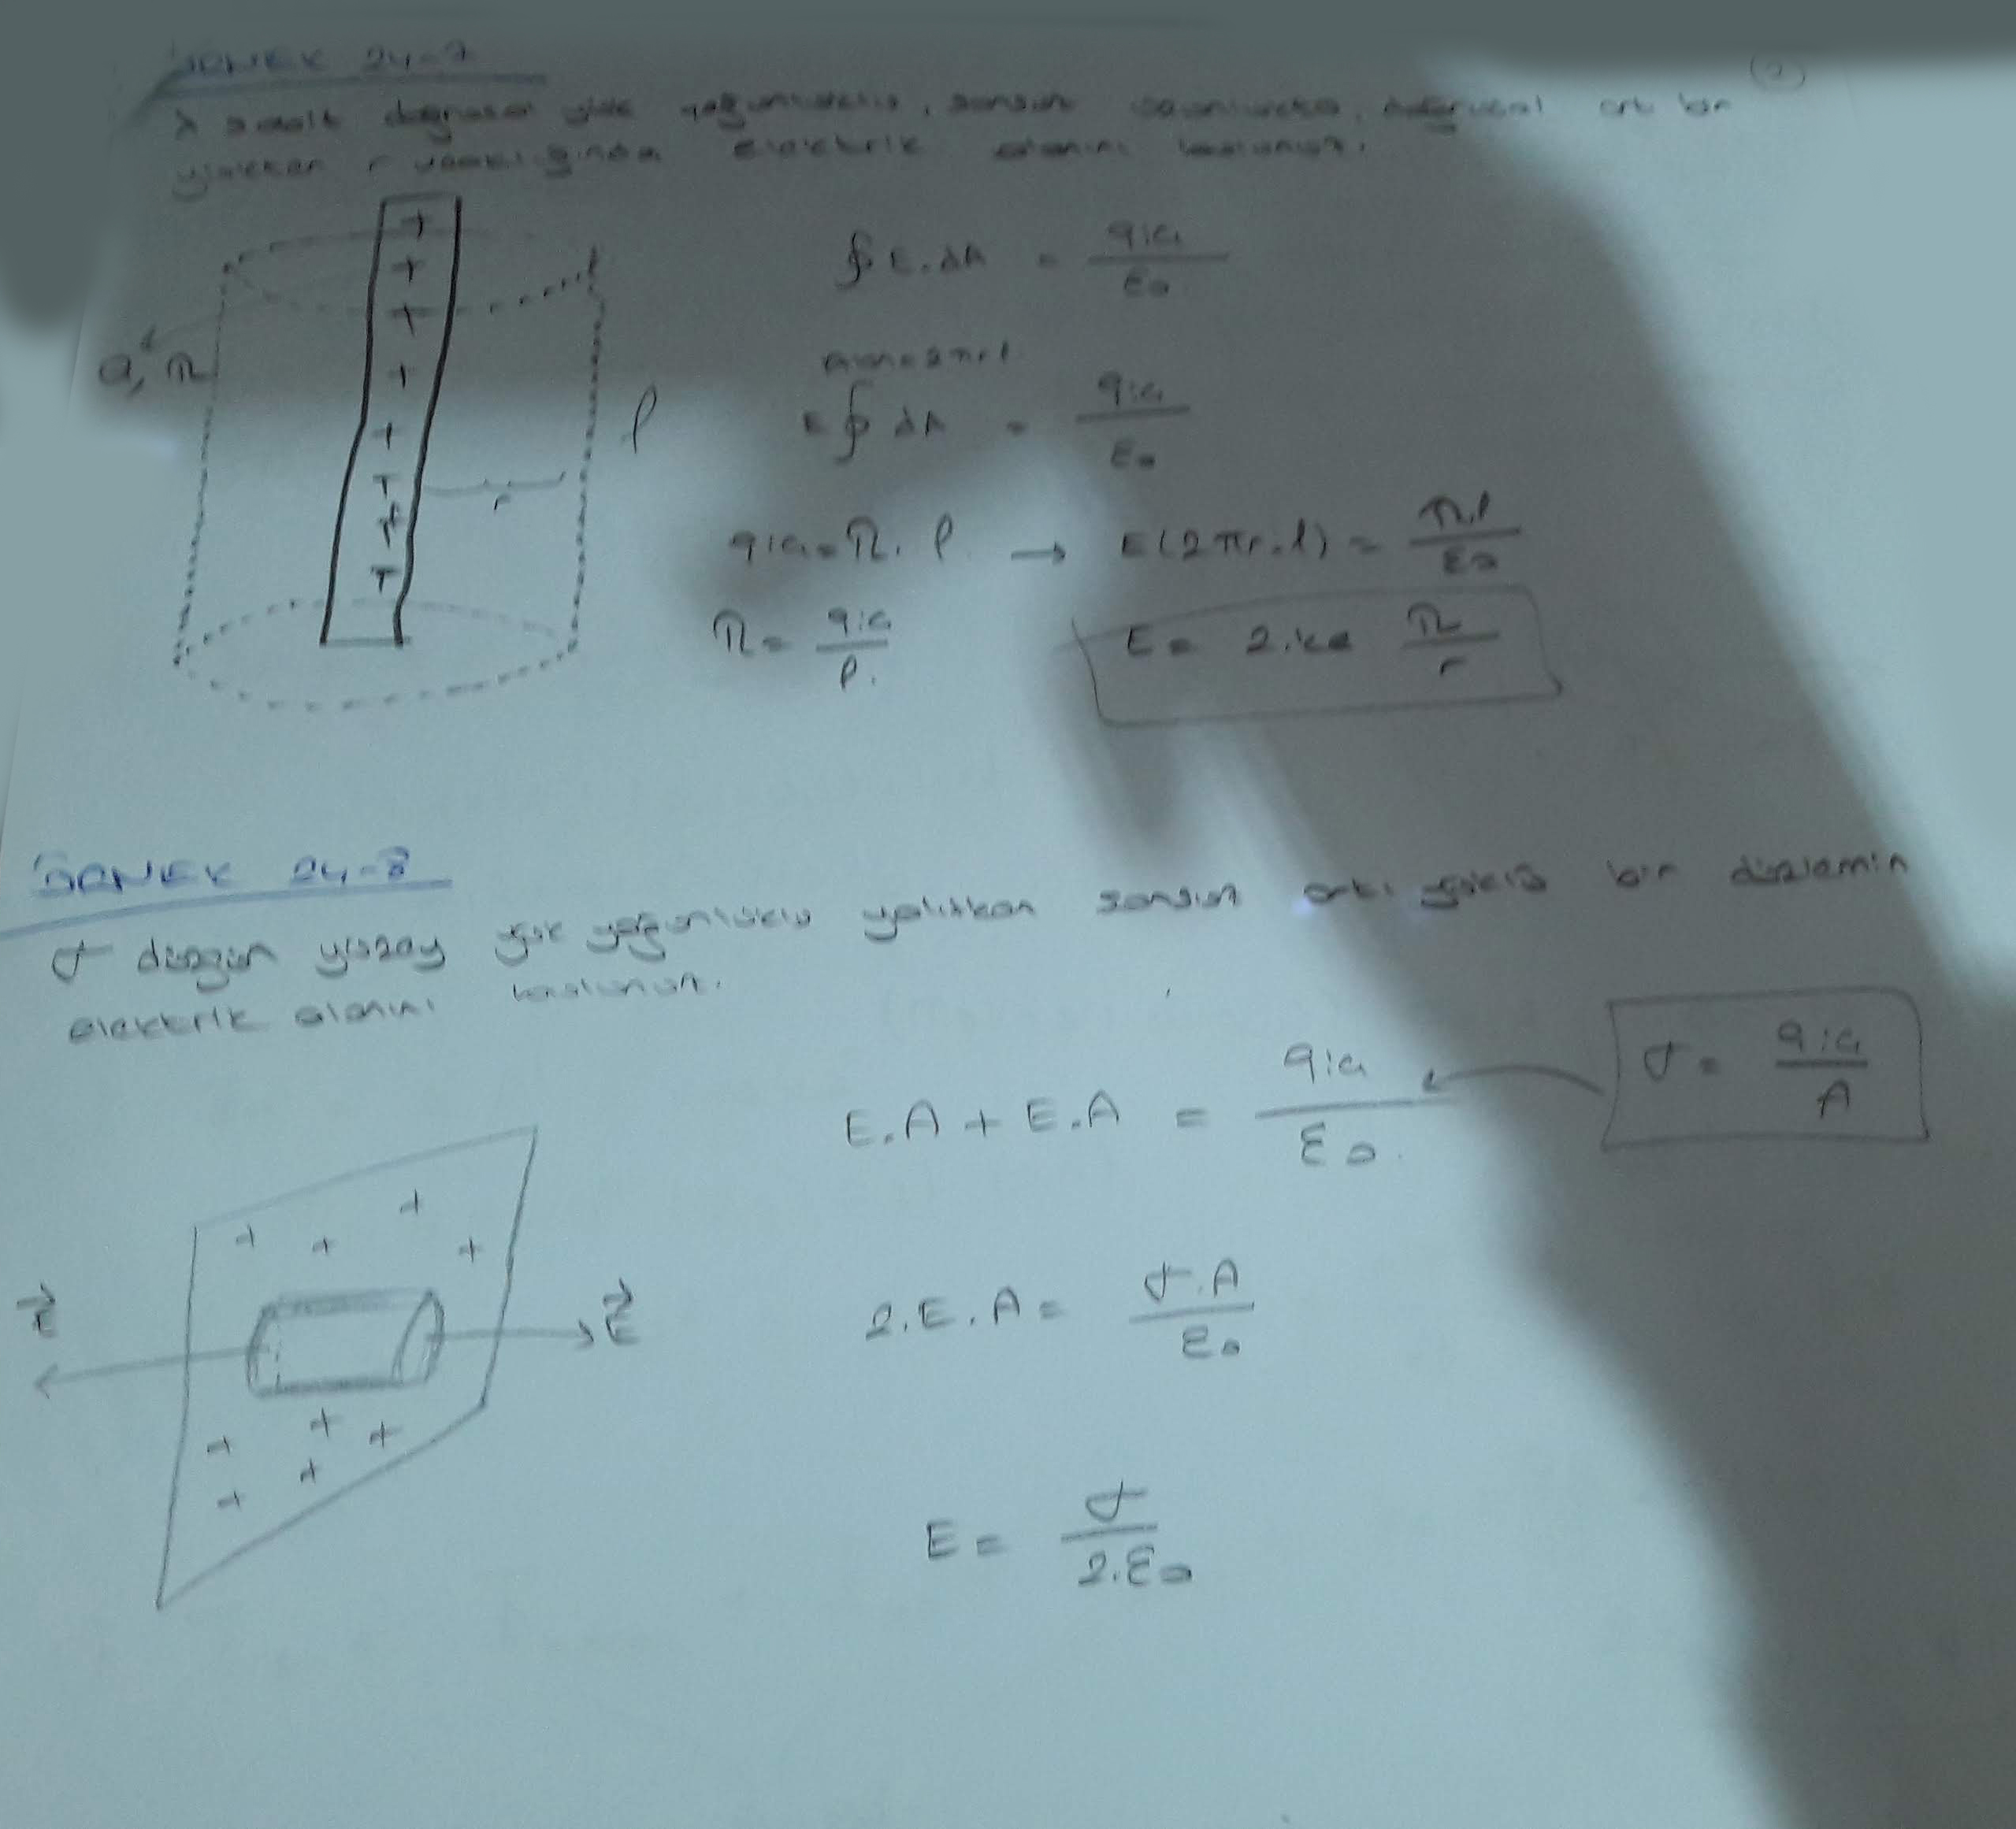 ÖRNEK 24-7
λ sabit doğrusal yük yoğunluklu, sonsuz uzunlukta, doğrusal artı bir
yükten r uzaklığında elektrik alanını bulunuz.
∮E.dA = qiç / ε0
Alan=2πrl
E∮dA = qiç / ε0
r
l
qiç = λ.l → E(2πr.l) = λ.l / ε0
λ = qiç / l.
E = 2.ke λ / r
ÖRNEK 24-8
σ düzgün yüzey yük yoğunluklu yalıtkan sonsuz artı yüklü bir düzlemin
elektrik alanını bulunuz.
E.A + E.A = qiç / ε0.
σ = qiç / A
2.E.A = σ.A / ε0
E
E
E = σ / 2.ε0